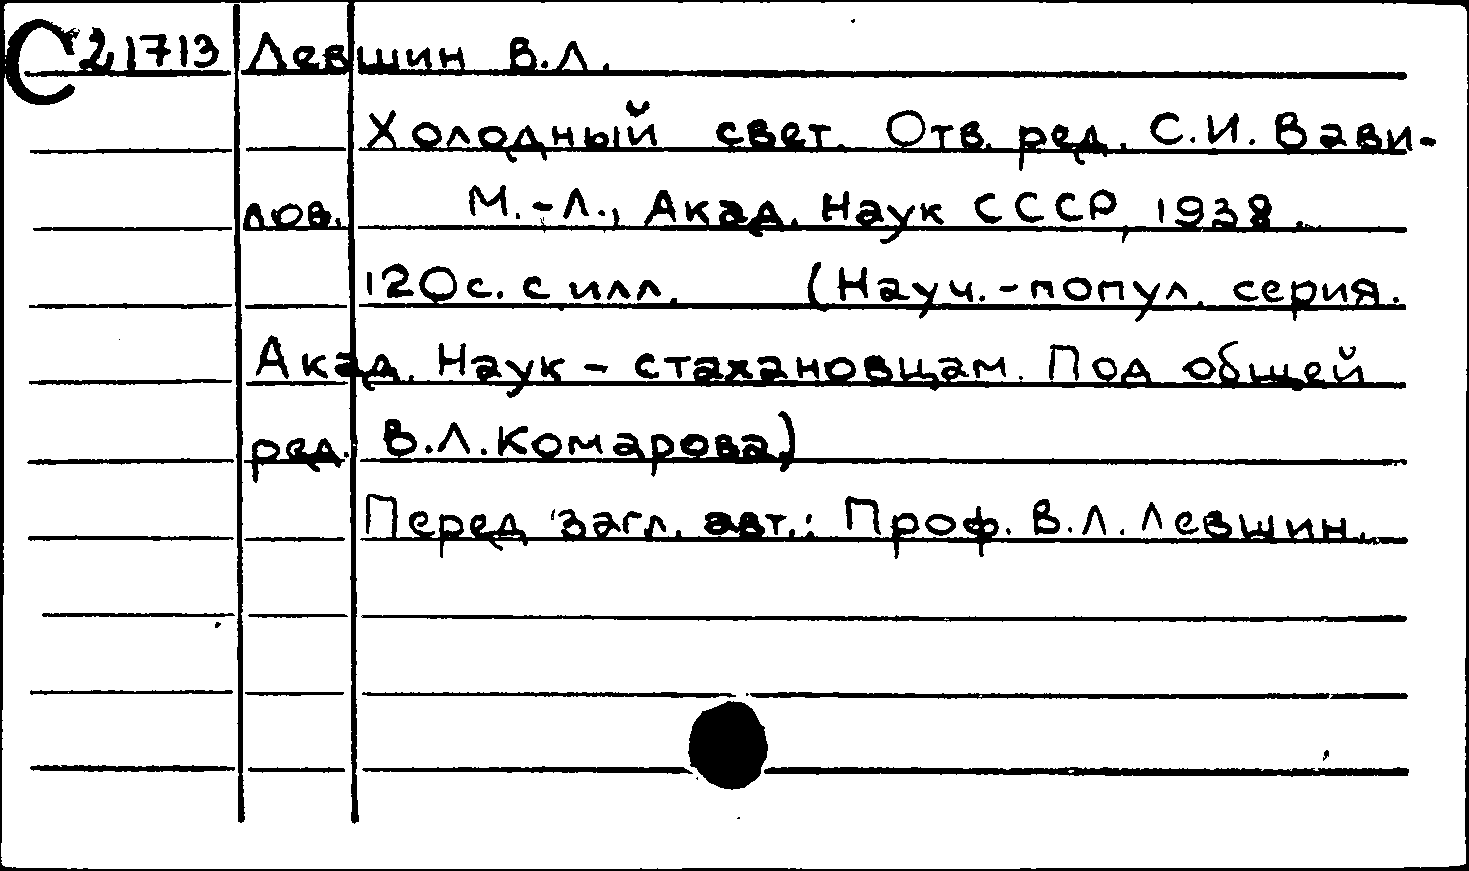 С21713 Левшин В.Л.
Холодный свет. Отв. ред. С.И. Вави-
лов. М.-Л., Акад. Наук СССР, 1938.
120с. с илл. (Науч.-попул. серия.
Акад. Наук - стахановцам. Под общей
ред. В.Л.Комарова)
Перед загл. авт.: Проф. В.Л. Левшин.